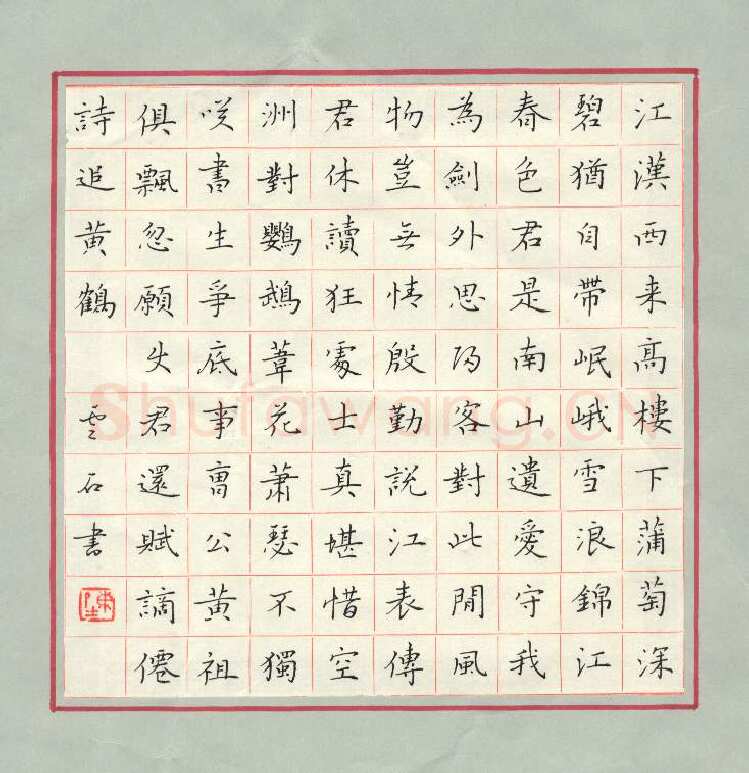 江漢西来高樓下蒲萄深
碧猶自帶岷峨雪浪錦江
春色君是南山遺愛守我
為劍外思歸客對此間風
物豈無情殷勤說江表傳
君休讀狂處士真堪惜空
洲對鸚鵡葦花蕭瑟不獨
咲書生爭底事曹公黃祖
俱飄忽願使君還賦謫僊
詩追黃鶴
雲石書
Shufawang.CN